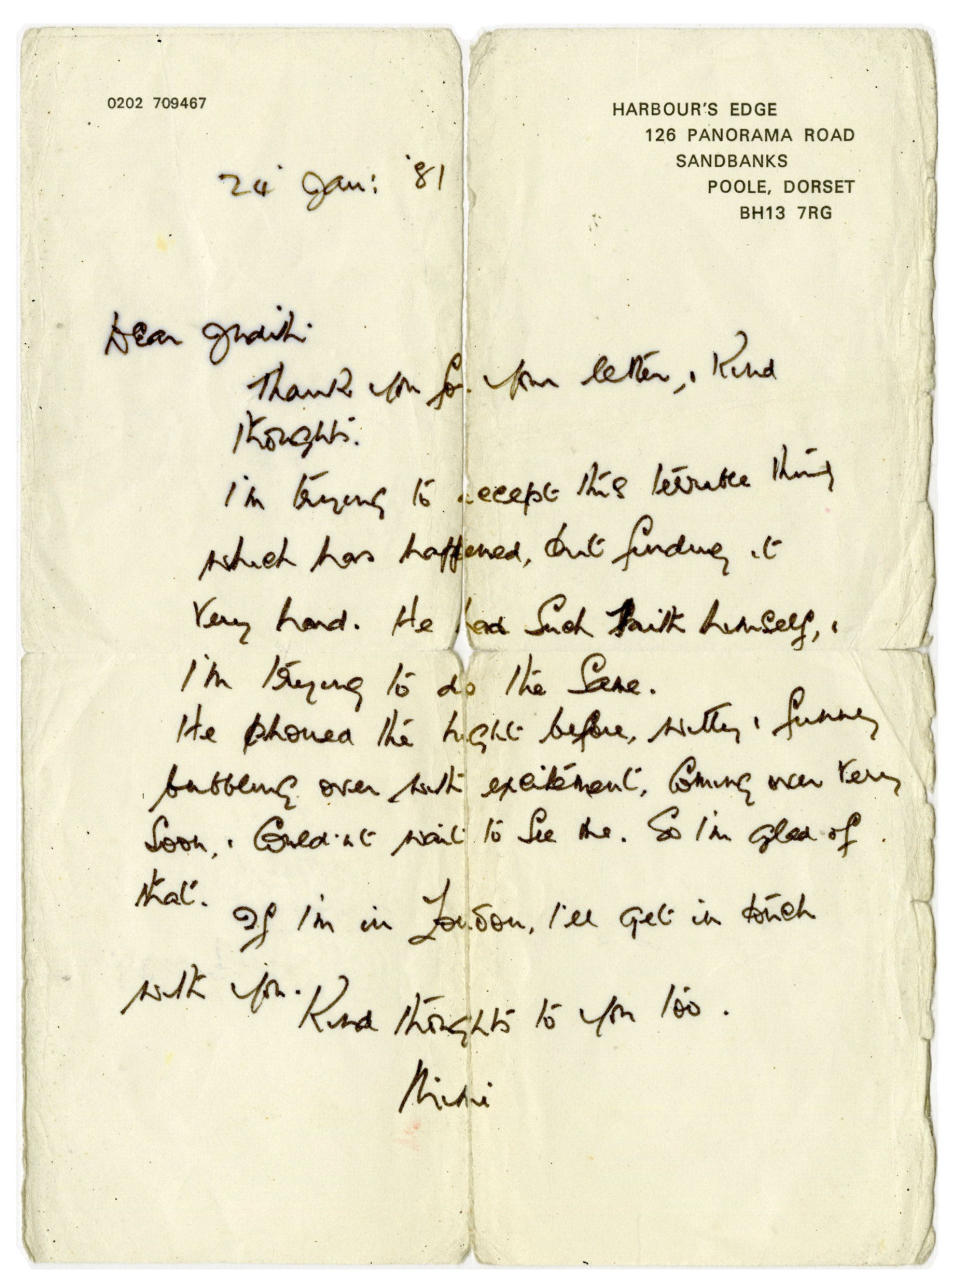 0202 709467
HARBOUR'S EDGE
126 PANORAMA ROAD
SANDBANKS
POOLE, DORSET
BH13 7RG
24 Jan: '81
Dear Judith
Thank you for your letter, & Kind
thoughts.
I'm trying to accept this terrible thing
which has happened, but finding it
very hard. He had such faith himself, &
I'm trying to do the same.
He phoned the night before, witty & funny
bubbling over with excitement, coming over very
soon, & could'nt wait to see me. So I'm glad of
that.
If I'm in London, I'll get in touch
with you.
Kind thoughts to you too.
Mimi